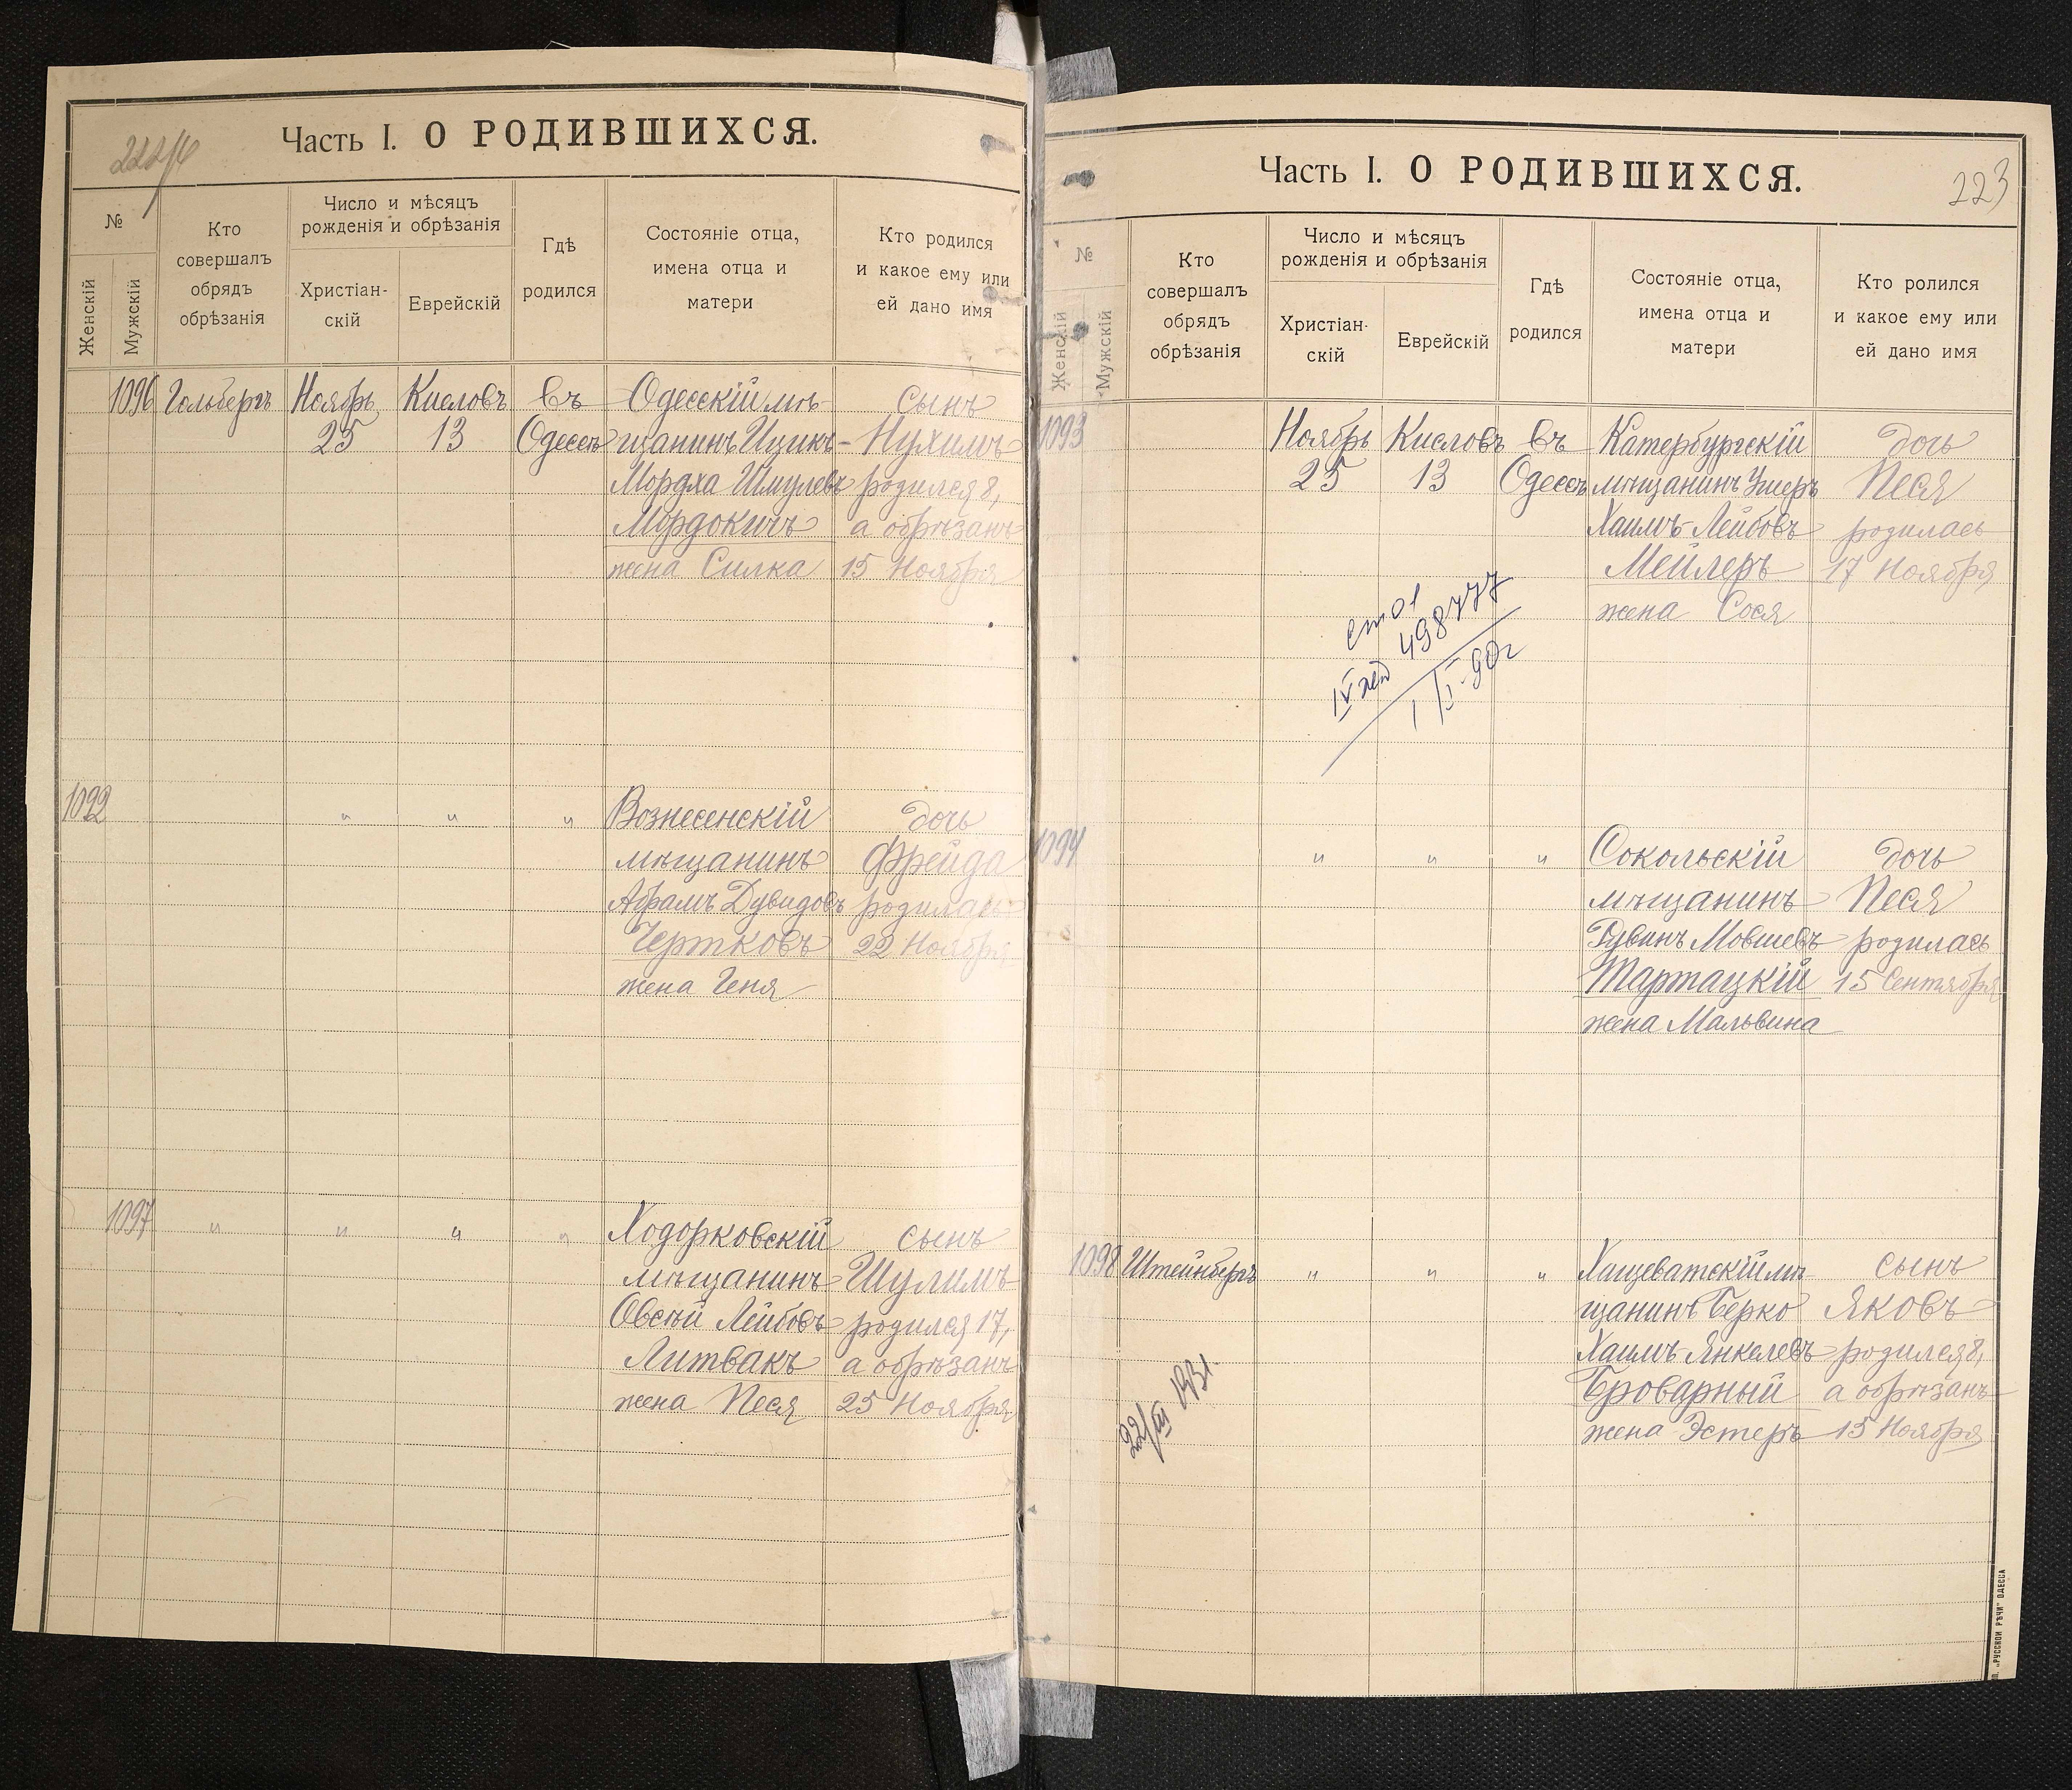 Часть I. О РОДИВШИХСЯ.
№
Женскій
Мужскій
Кто
совершалъ
обрядъ
обрѣзанія
Число и мѣсяцъ
рожденія и обрѣзанія
Христіан-
скій
Еврейскій
Гдѣ
родился
Состояніе отца,
имена отца и
матери
Кто родился
и какое ему или
ей дано имя
1096 Гольбергъ Ноябрь Кисловъ въ Одесскій мѣ- сынъ
25 13 Одессѣ щанинъ Ицикъ- Нухимъ
Мордха Шмулевъ родился 8,
Мордоковичъ а обрѣзанъ
жена Силка 15 Ноября
1092 " " " Вознесенскій дочь
мѣщанинъ Фрейда
Абрамъ Дувидовъ родилась
Чертковъ 22 Ноября
жена Геня
1097 " " " " Ходорковскій сынъ
мѣщанинъ Шулимъ
Овсѣй Лейбовъ родился 17,
Литвакъ а обрѣзанъ
жена Песя 25 Ноября
Часть I. О РОДИВШИХСЯ.
223
№
Женскій
Мужскій
Кто
совершалъ
обрядъ
обрѣзанія
Число и мѣсяцъ
рожденія и обрѣзанія
Христіан-
скій
Еврейскій
Гдѣ
родился
Состояніе отца,
имена отца и
матери
Кто ролился
и какое ему или
ей дано имя
1093 Ноябрь Кисловъ въ Катербургскій дочь
25 13 Одессѣ мѣщанинъ Ушеръ Песя
Хаимъ-Лейбовъ родилась
Мейлеръ 17 Ноября
жена Сося
498777
1094 " " " Сокольскій дочь
мѣщанинъ Песя
Рувинъ Мовшевъ родилась
Тартацкій 15 Сентября
жена Мальвина
1098 Штейнбергъ " " " Хащеватскій мѣ- сынъ
щанинъ Берко Яковъ
Хаимъ-Янкелевъ родился 8,
Броварный а обрѣзанъ
жена Эстеръ 15 Ноября
22/III 1931.
„РУССКОЙ РѢЧИ“ ОДЕССА